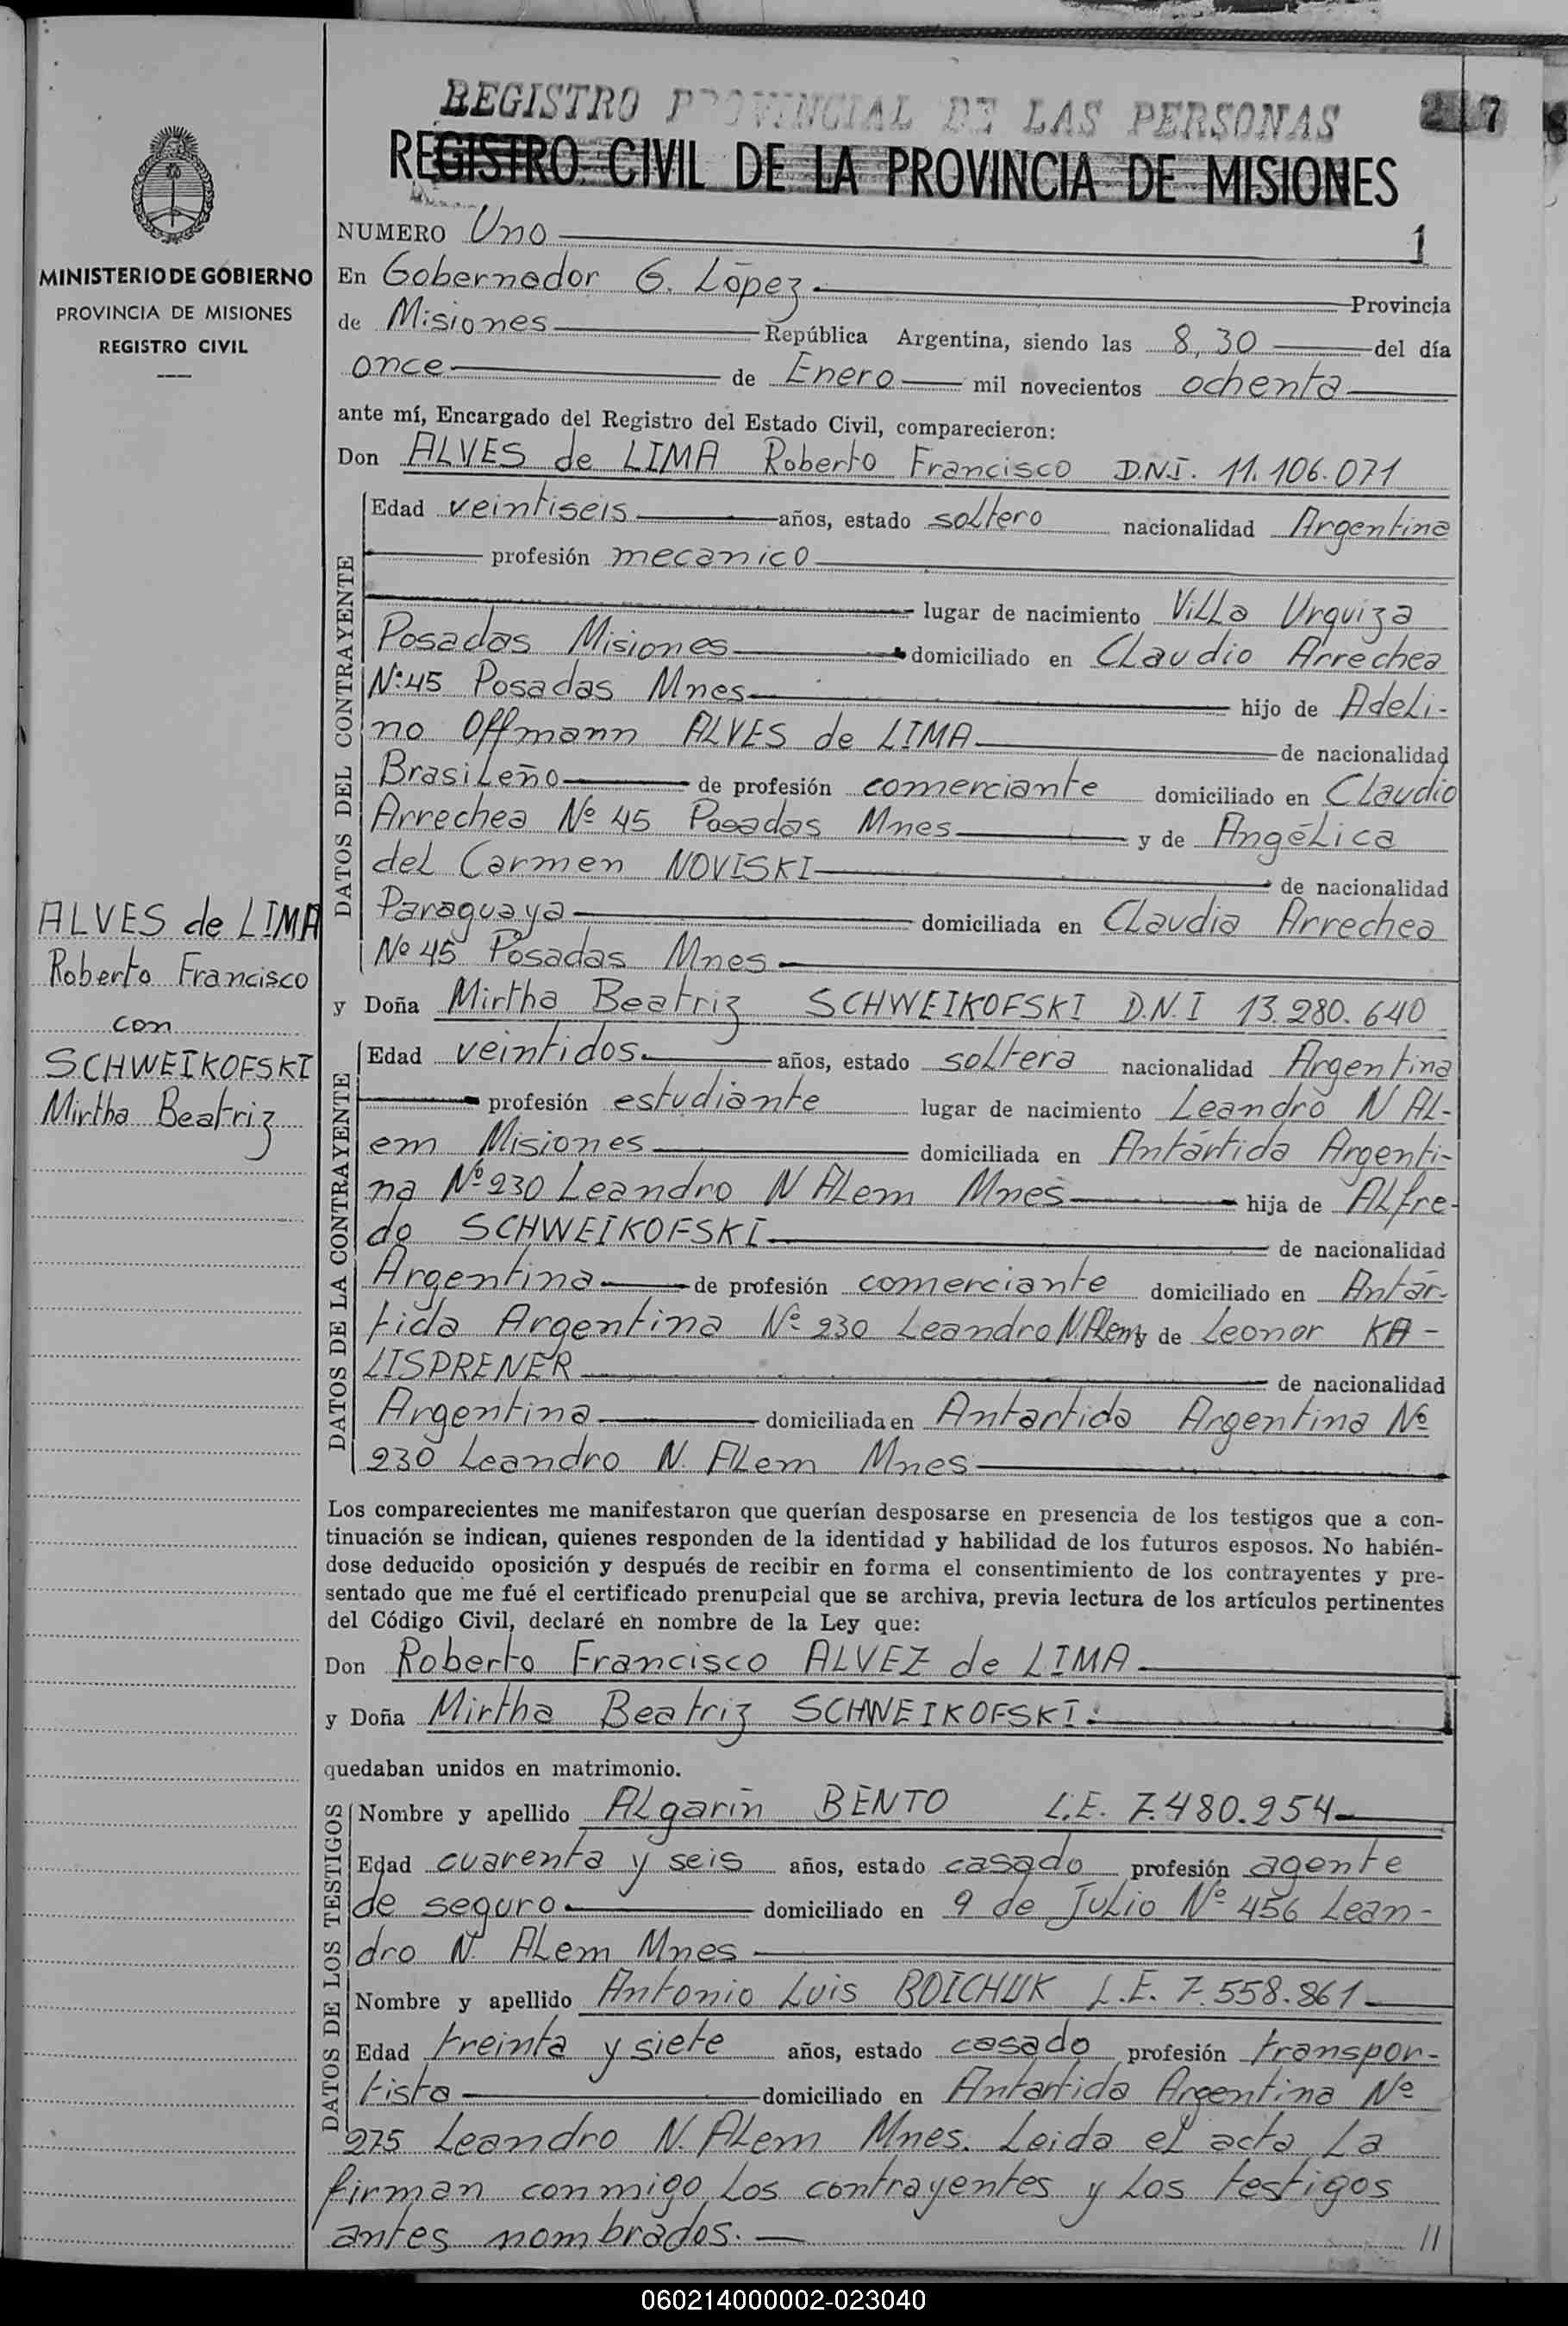 REGISTRO PROVINCIAL DE LAS PERSONAS
7
REGISTRO CIVIL DE LA PROVINCIA DE MISIONES
MINISTERIO DE GOBIERNO
PROVINCIA DE MISIONES
REGISTRO CIVIL
ALVES de LIMA
Roberto Francisco
con
SCHWEIKOFSKI
Mirtha Beatriz
NUMERO Uno 1
En Gobernador G. López. Provincia
de Misiones República Argentina, siendo las 8,30 del día
once de Enero mil novecientos ochenta
ante mí, Encargado del Registro del Estado Civil, comparecieron:
Don ALVES de LIMA Roberto Francisco D.N.I. 11.106.071
DATOS DEL CONTRAYENTE
Edad veintiseis años, estado soltero nacionalidad Argentina
profesión mecanico
lugar de nacimiento Villa Urquiza
Posadas Misiones domiciliado en Claudio Arrechea
Nº45 Posadas Mnes hijo de Adeli-
no Offmann ALVES de LIMA de nacionalidad
Brasileño de profesión comerciante domiciliado en Claudio
Arrechea Nº 45 Posadas Mnes y de Angélica
del Carmen NOVISKI de nacionalidad
Paraguaya domiciliada en Claudia Arrechea
Nº 45 Posadas Mnes
y Doña Mirtha Beatriz SCHWEIKOFSKI D.N.I 13.280.640
DATOS DE LA CONTRAYENTE
Edad veintidos años, estado soltera nacionalidad Argentina
profesión estudiante lugar de nacimiento Leandro N AL-
em Misiones domiciliada en Antártida Argenti-
na Nº 230 Leandro N ALem Mnes hija de ALfre-
do SCHWEIKOFSKI de nacionalidad
Argentina de profesión comerciante domiciliado en Antár-
tida Argentina Nº 230 Leandro N ALem y de Leonor KA-
LISPRENER de nacionalidad
Argentina domiciliada en Antartida Argentina Nº
230 Leandro N. ALem Mnes
Los comparecientes me manifestaron que querían desposarse en presencia de los testigos que a con-
tinuación se indican, quienes responden de la identidad y habilidad de los futuros esposos. No habién-
dose deducido oposición y después de recibir en forma el consentimiento de los contrayentes y pre-
sentado que me fué el certificado prenupcial que se archiva, previa lectura de los artículos pertinentes
del Código Civil, declaré en nombre de la Ley que:
Don Roberto Francisco ALVEZ de LIMA
y Doña Mirtha Beatriz SCHWEIKOFSKI.
quedaban unidos en matrimonio.
DATOS DE LOS TESTIGOS
Nombre y apellido ALgarin BENTO L.E. 7.480.254
Edad cuarenta y seis años, estado casado profesión agente
de seguro domiciliado en 9 de Julio Nº 456 Lean-
dro N. ALem Mnes
Nombre y apellido Antonio Luis BOICHUK L.E. 7.558.861
Edad treinta y siete años, estado casado profesión transpor-
tista domiciliado en Antartida Argentina Nº
275 Leandro N. ALem Mnes. Leida el acta La
firman conmigo Los contrayentes y Los testigos
antes nombrados. //
060214000002-023040